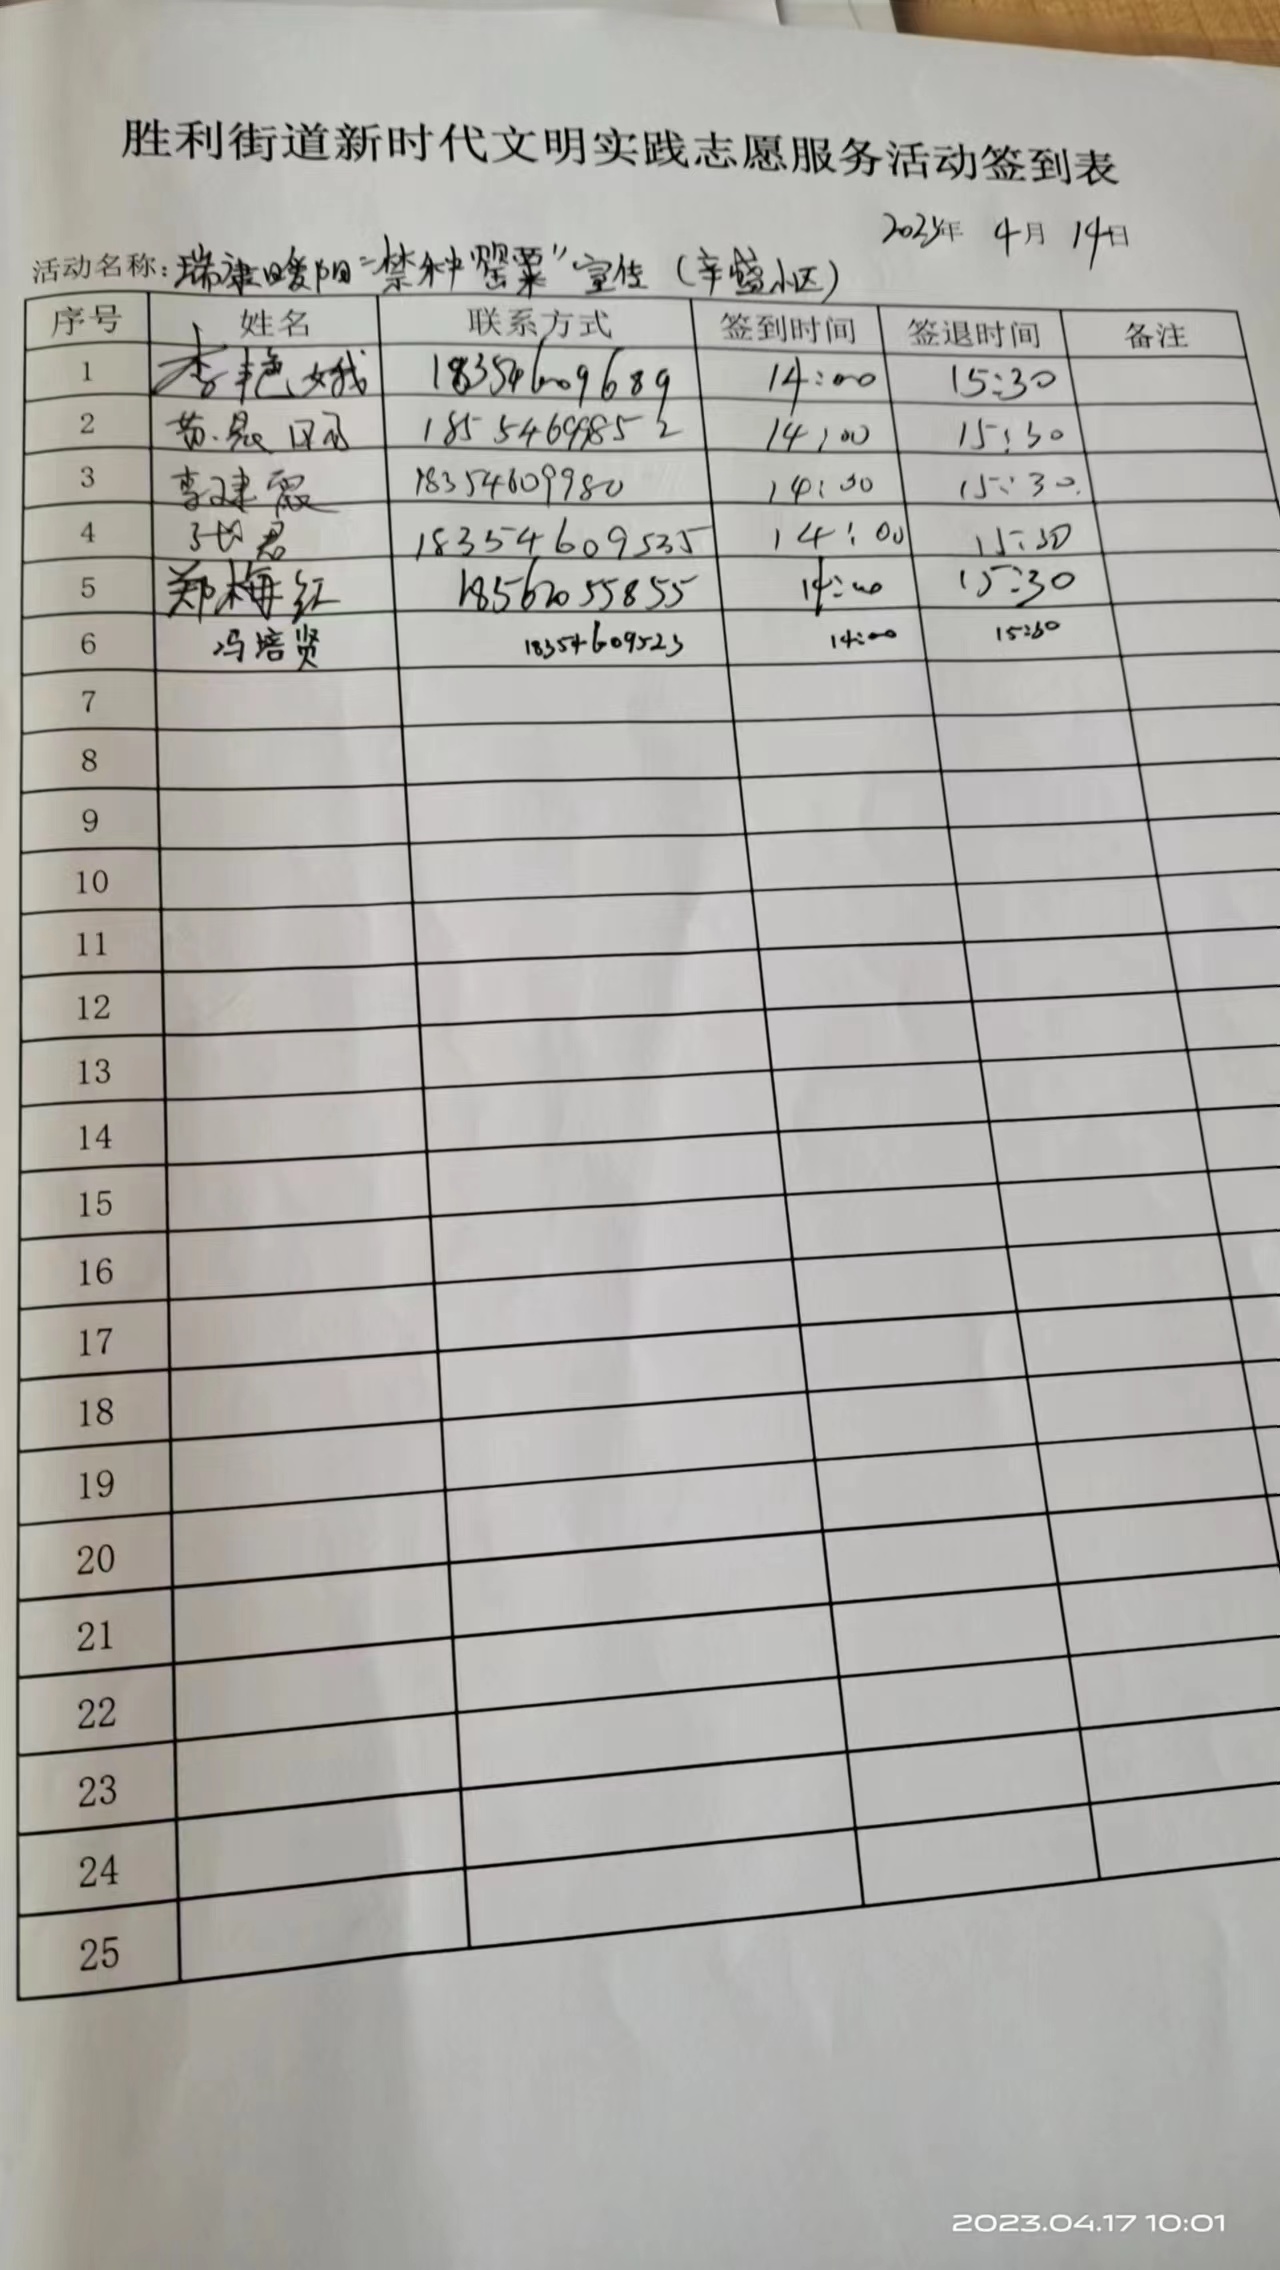 胜利街道新时代文明实践志愿服务活动签到表
2023年 4月 14日
活动名称：瑞康暖阳"禁种罂粟"宣传（辛盛小区）
序号 姓名 联系方式 签到时间 签退时间 备注
1 李艳娥 18354609689 14:00 15:30
2 18554699852 14:00 15:30
3 李建霞 18354609980 14:00 15:30
4 张君 18354609535 14:00 15:30
5 郑梅红 18562055855 14:00 15:30
6 冯培贤 18354609523 14:00 15:30
7
8
9
10
11
12
13
14
15
16
17
18
19
20
21
22
23
24
25
2023.04.17 10:01